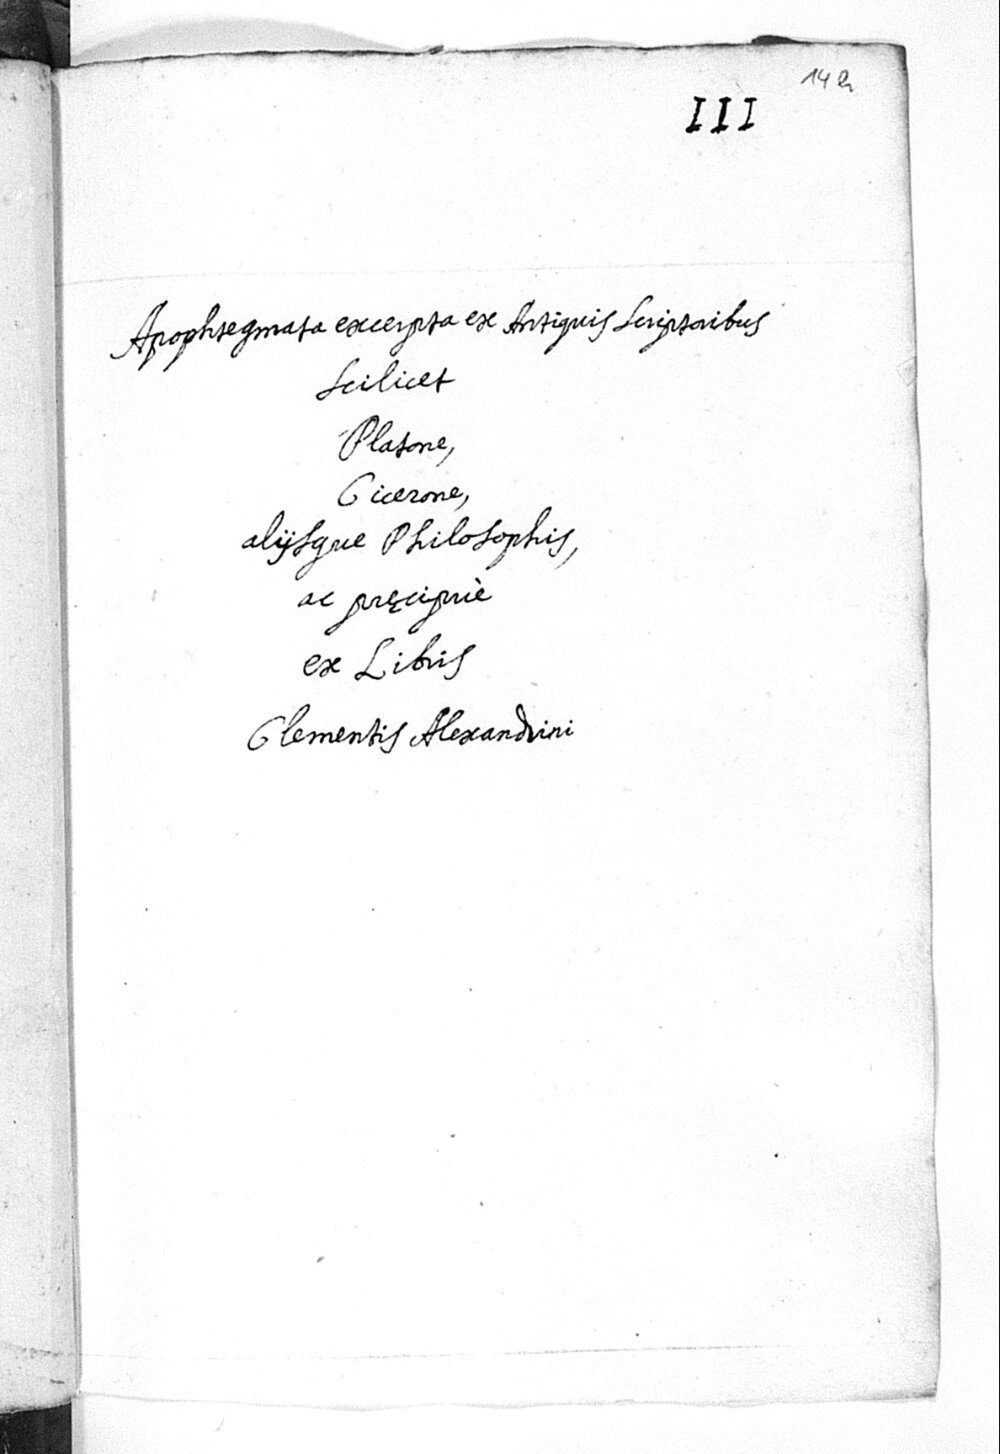 142
III
Apophtegmata excerpta ex Antiquis Scriptoribus
Scilicet
Platone,
Cicerone,
alijsque Philosophis,
ac pręcipuè
ex Libris
Clementis Alexandrini